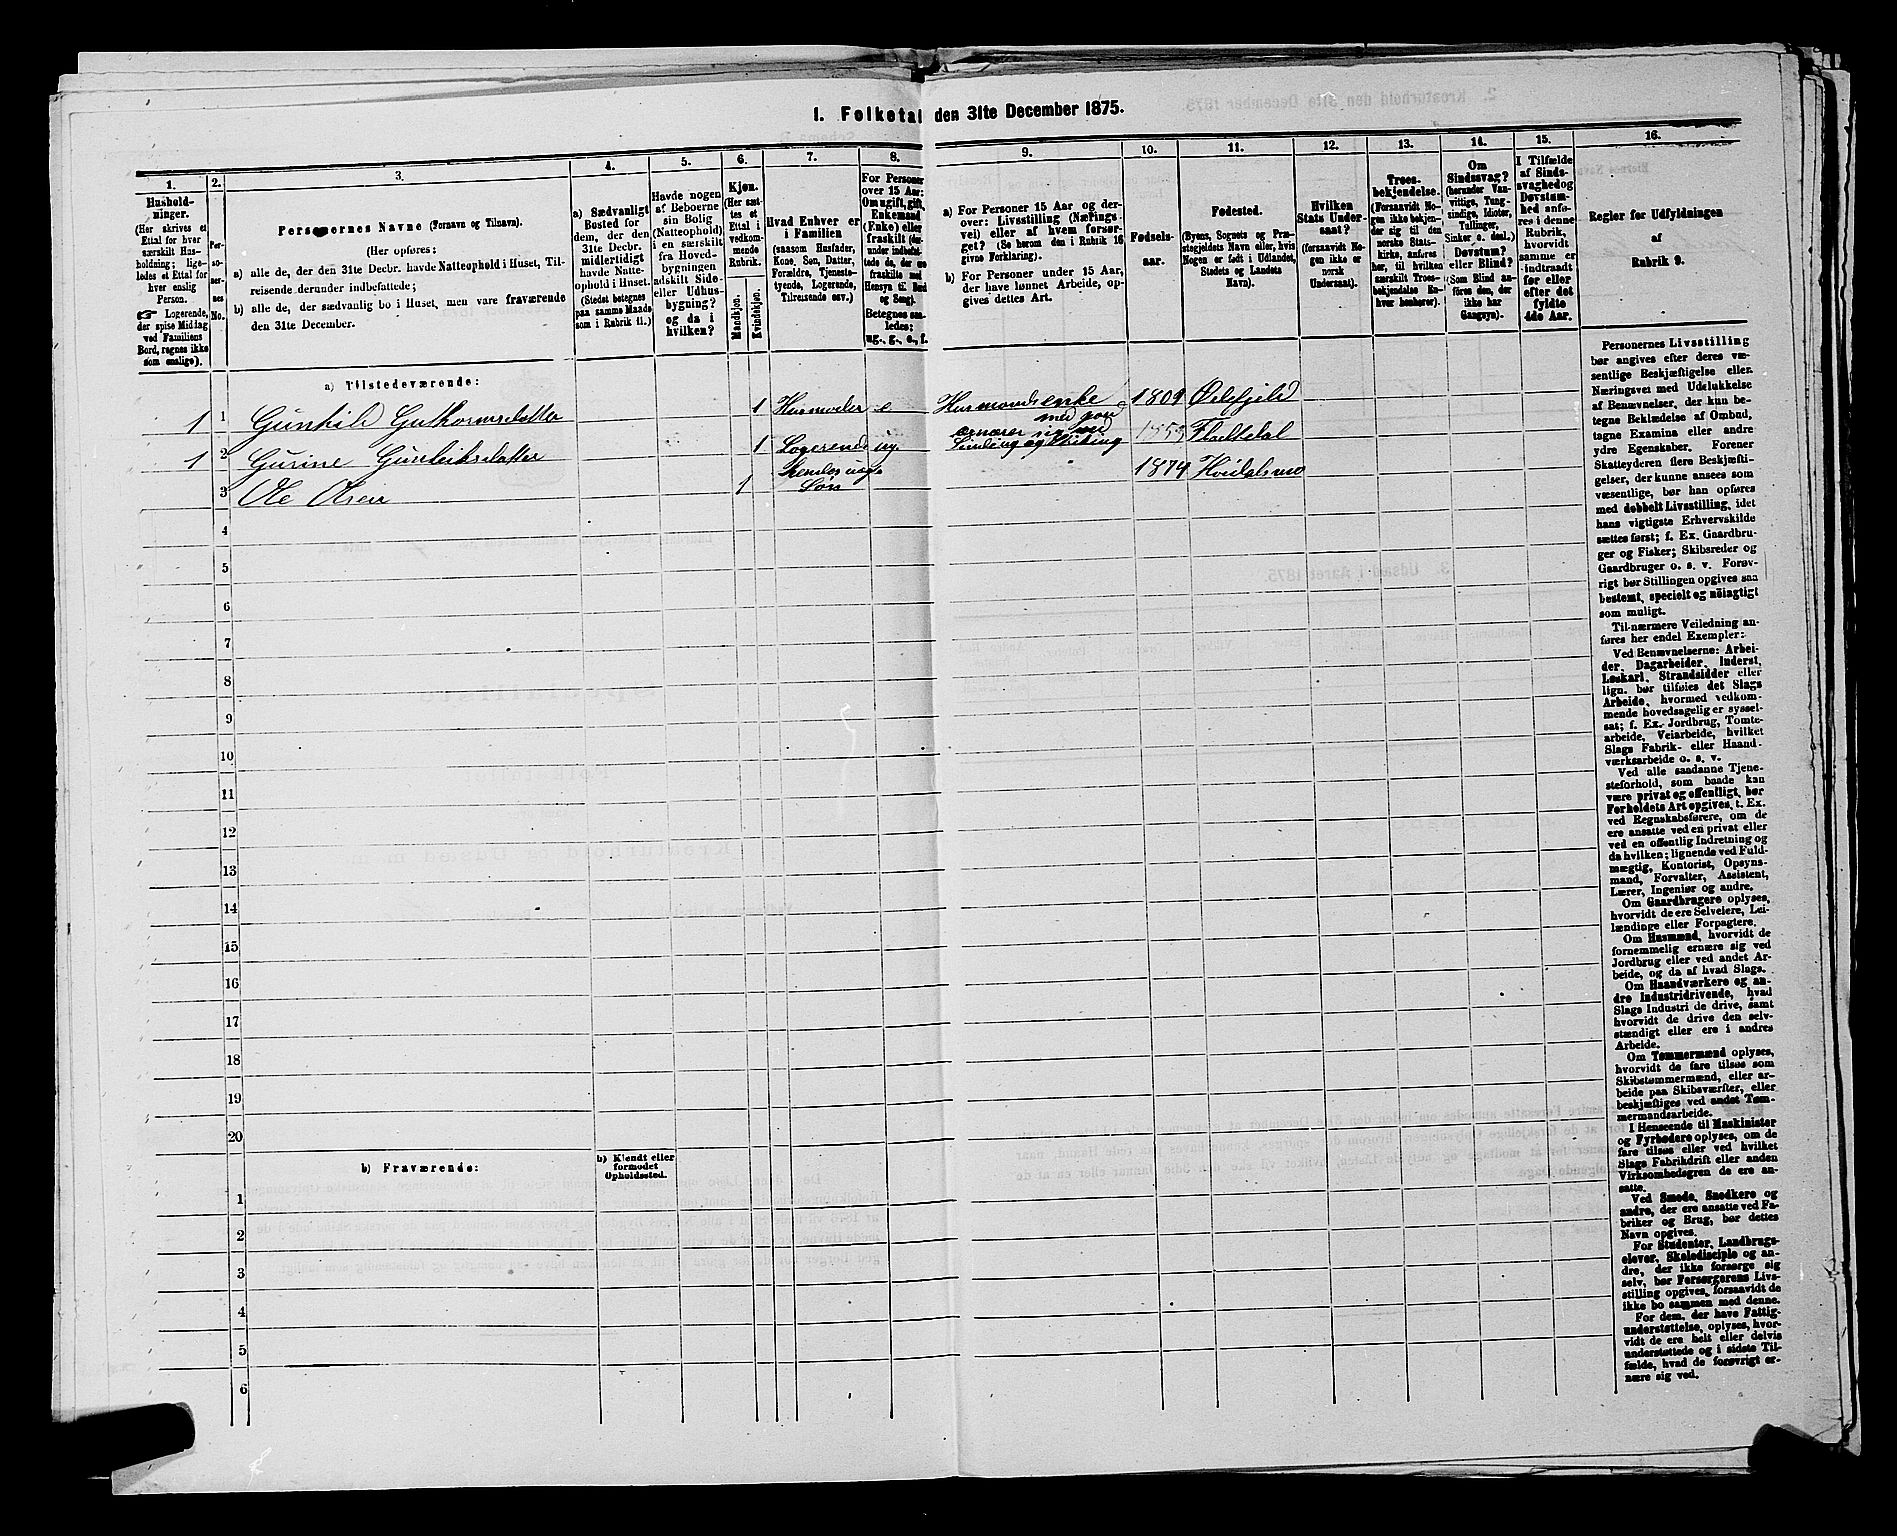 I. Folketal den 31te December 1875.
1.
2.
3.
4.
5.
6.
7.
8.
9.
10.
11.
12.
13.
14.
15.
16.
Hushold-
ninger.
(Her skrives et
Ettal for hver
særskilt Hus-
holdning; lige-
ledes et Ettal for
hver enslig
Person.
☞ Logerende,
der spise Middag
ved Familiens
Bord, regnes ikke
som enslige).
Per-
so-
ner-
nes
No.
Personernes Navne (Fornavn og Tilnavn).
(Her opføres:
a) alle de, der den 31te Decbr. havde Natteophold i Huset, Til-
reisende derunder indbefattede;
b) alle de, der sædvanlig bo i Huset, men vare fraværende
den 31te December.
a) Sædvanligt
Bosted for
dem, der den
31te Decbr.
midlertidigt
havde Natte-
ophold i Huset.
(Stedet betegnes
paa samme Maade
som i Rubrik 11.)
Havde nogen
af Beboerne
sin Bolig
(Natteophold)
i en særskilt
fra Hoved-
bygningen
adskilt Side-
eller Udhus-
bygning?
og da i
hvilken?
Kjøn.
(Her sæt-
tes et
Ettal i
vedkom-
mende
Rubrik.
Mandkjøn.
Kvindekjøn.
Hvad Enhver er
i Familien
(saasom Husfader,
Kone, Søn, Datter,
Forældre, Tjeneste-
tyende, Logerende,
Tilreisende osv.)
For Personer
over 15 Aar:
Om ugift, gift,
Enkemand
(Enke) eller
fraskilt (der-
under indbefat-
tede de, der ere
fraskilte med
Hensyn til Bord
og Seng).
Betegnes saa-
ledes:
ug., g., e., f.
a) For Personer 15 Aar og der-
over: Livsstilling (Nærings-
vei) eller af hvem forsør-
get? (Se herom den i Rubrik 16
givne Forklaring).
b) For Personer under 15 Aar,
der have lønnet Arbeide, op-
gives dettes Art.
Fødsels-
aar.
Fødested.
(Byens, Sognets og Præ-
stegjeldets Navn eller, hvis
Nogen er født i Udlandet,
Stedets og Landets
Navn).
Hvilken
Stats Under-
saat?
(forsaavidt No-
gen ikke er
norsk
Undersaat).
Troes-
bekjendelse.
(Forsaavidt No-
gen ikke bekjen-
der sig til den
norske Stats-
kirke, anføres
her, til hvilken
særskilt Troes-
bekjendelse En-
hver henhører).
Om
Sindssvag?
(herunder Van-
vittige, Tung-
sindige, Idioter,
Tullinger,
Sinker o. desl.)
Døvstum?
eller Blind?
(Som Blind an-
føres den, der
ikke har
Gangsyn).
I Tilfælde
af Sinds-
svaghed og
Døvstum-
hed anfø-
res i denne
Rubrik,
hvorvidt
samme er
indtraadt
før eller
efter det
fyldte
4de Aar.
Regler for Udfyldningen
af
Rubrik 9.
a) Tilstedeværende:
1 1 Gunhild Guthormsdatter 1 Husmoder e Husmandsenke med jord 1809 Ørefjeld
1 2 Gurine Gunleiksdatter 1 Logerende ug. ernærer sig ved Pinding og Strikking 1853 Flaatedal
3 Ole Olsen 1 Hendes uægte Søn 1874 Høidalsmo
4
5
6
7
8
9
10
11
12
13
14
15
16
17
18
19
20
b) Fraværende:
b) Kjendt eller
formodet
Opholdssted.
1
2
3
4
5
6
Personernes Livsstilling
bør angives efter deres væ-
sentlige Beskjæftigelse eller
Næringsvei med Udelukkelse
af Benævnelser, der kun be-
tegne Beklædelse af Ombud,
tagne Examina eller andre
ydre Egenskaber. Forener
Skatteyderen flere Beskjæfti-
gelser, der kunne ansees som
væsentlige, bør han opføres
med dobbelt Livsstilling, idet
hans vigtigste Erhvervskilde
sættes først; f. Ex. Gaardbru-
ger og Fisker; Skibsreder og
Gaardbruger o. s. v. Forøv-
rigt bør Stillingen opgives saa
bestemt, specielt og nöiagtigt
som muligt.
Til nærmere Veiledning an-
føres her endel Exempler:
Ved Benævnelserne: Arbei-
der, Dagarbeider, Inderst,
Løskarl, Strandsidder eller
lign. bør tilføies det Slags
Arbeide, hvormed vedkom-
mende hovedsagelig er syssel-
sat; f. Ex. Jordbrug, Tomte-
arbeide, Veiarbeide, hvilket
Slags Fabrik- eller Haand-
værksarbeide o. s. v.
Ved alle saadanne Tjene-
steforhold, som baade kan
være privat og offentligt, bør
Forholdets Art opgives, t. Ex.
ved Regnskabsførere, om de
ere ansatte ved en privat eller
ved en offentlig Indretning og
da hvilken; lignende ved Fuld-
mægtig, Kontorist, Opsyns-
mand, Forvalter, Assistent,
Lærer, Ingeniør og andre.
Om Gaardbrugere oplyses,
hvorvidt de ere Selveiere, Lei-
lændinge eller Forpagtere.
Om Husmænd, hvorvidt de
fornemmelig ernære sig ved
Jordbrug eller ved andet Ar-
beide, og da af hvad Slags.
Om Haandværkere og an-
dre Industridrivende, hvad
Slags Industri de drive, samt
hvorvidt de drive den selv-
stændigt eller ere i andres
Arbeide.
Om Tømmermænd oplyses,
hvorvidt de fare tilsøs som
Skibstømmermænd, eller ar-
beide paa Skibsværfter, eller
beskjæftiges ved andet Tøm-
mermandsarbeide.
I Henseende til Maskinister
og Fyrbødere oplyses, om de
fare tilsøs eller ved hvilket
Slags Fabrikdrift eller anden
Virksomhedsgren de ere an-
satte.
Ved Smede, Snedkere og
andre, der ere ansatte ved Fa-
briker og Brug, bør dettes
Navn opgives.
For Studenter, Landbrugs-
elever, Skoledisciple og an-
dre, der ikke forsørge sig
selv, bør Forsørgerens Livs-
stilling opgives, forsaavidt de
ikke bo sammen med denne.
For dem, der have Fattig-
understøttelse, oplyses, hvor-
vidt de ere helt eller delvis
understøttede og i sidste Til-
fælde, hvad de forøvrigt er-
nære sig ved.